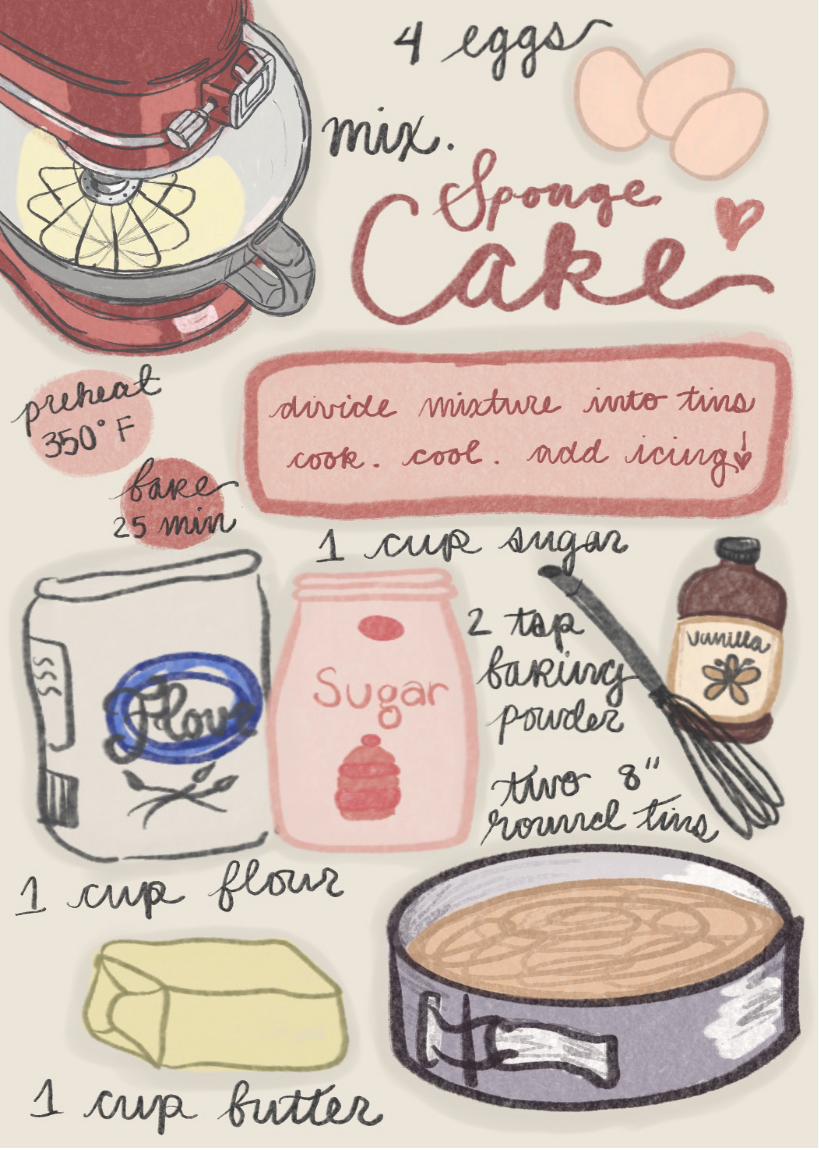 4 eggs
mix.
Sponge
Cake
preheat
350° F
divide mixture into tins
cook. cool. add icing
bake
25 min
1 cup sugar
Flour
Sugar
2 tsp
baking
powder
vanilla
two 8"
round tins
1 cup flour
1 cup butter